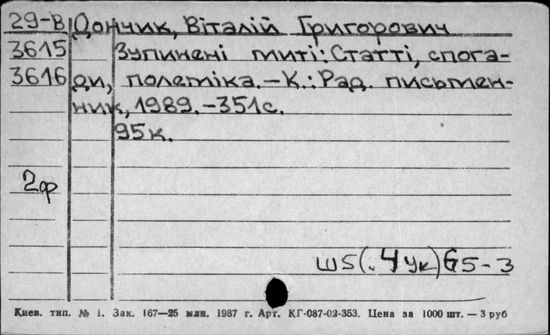 29-В Дончик, Віталій Григорович
3615 Зупинені миті: Статті, спога-
3616 ди, полеміка. – К.: Рад. письмен-
ник, 1989. – 351с.
95к.
2ф
Ш5(.4Ук)65-3
Киев. тип. № 1. Зак. 167—25 млн. 1987 г. Арт. КГ-087-02-353. Цена за 1000 шт. — 3 руб